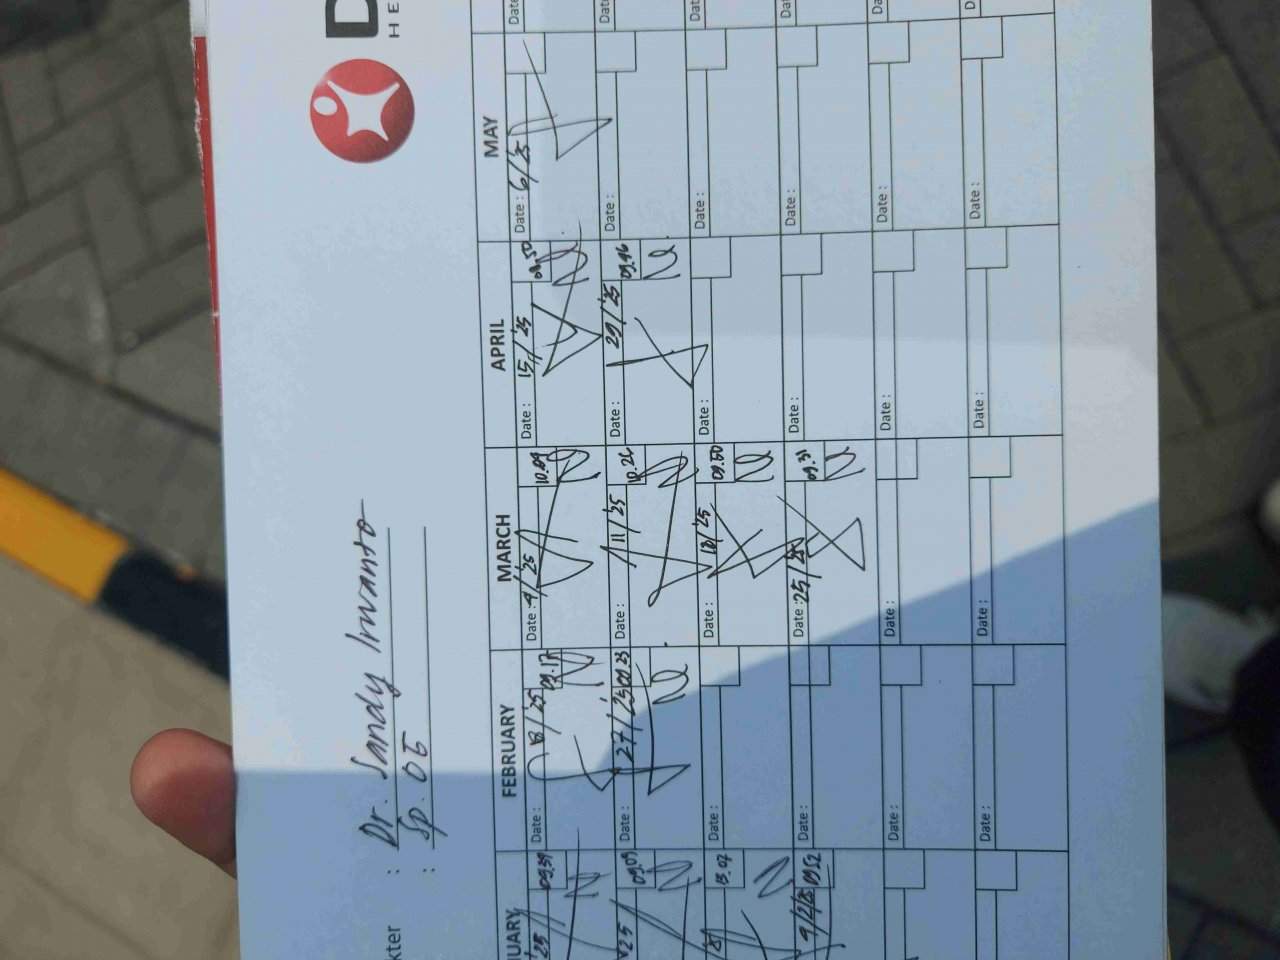 D
HE
kter : Dr. Sandy Irwanto
: Sp. OG
UARY FEBRUARY MARCH APRIL MAY
25 09.39 Date : 13/'25 09.17 Date : 4/'25 10.09 Date : 15/'25 Date : 6/'25 Date
'25 09.09 Date : 27/'25 09.23 Date : 11/'25 10.26 Date : 29/'25 09.46 Date : Dat
13.07 Date : Date : 18/'25 09.50 Date : Date : Dat
09.52 Date : Date : 25/'25 09.31 Date : Date : Dat
Date : Date : Date : Date : Da
Date : Date : Date : Date : D